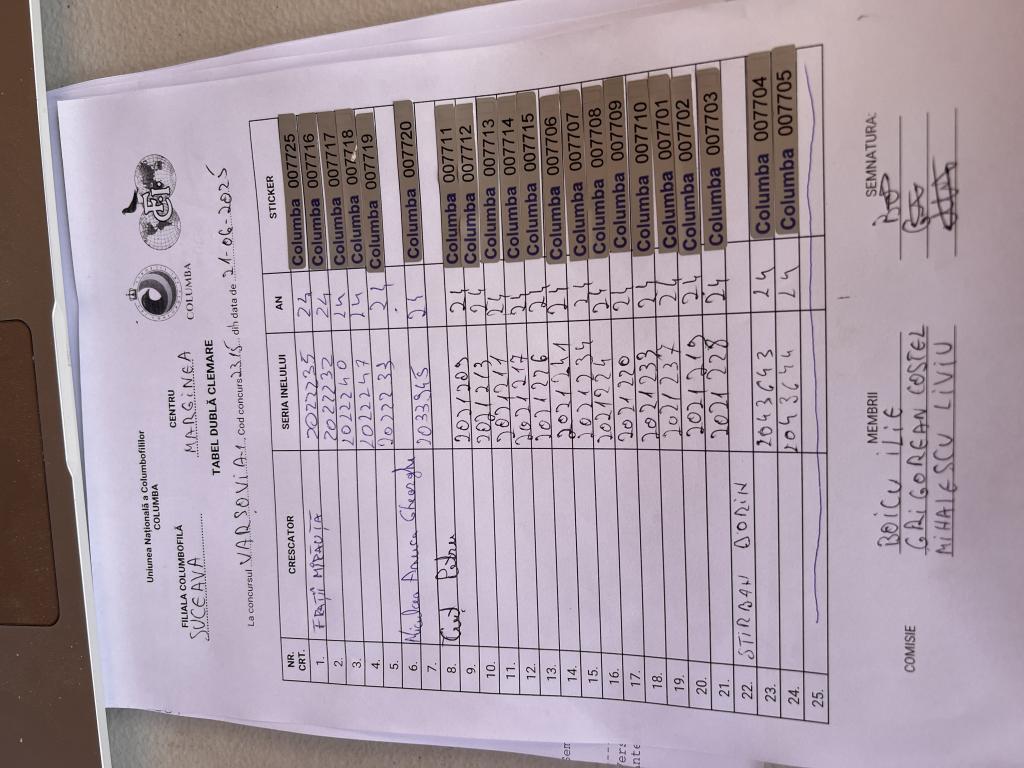 Uniunea Națională a Columbofililor
COLUMBA
COLUMBA
FILIALA COLUMBOFILĂ CENTRU
SUCEAVA MARGINEA
TABEL DUBLĂ CLEMARE
La concursul VARSOVIA 1 Cod concurs 2315 din data de 21-06-2025
NR. CRT. CRESCATOR SERIA INELULUI AN STICKER
1. FRAȚII 2022235 24 Columba 007725
2. 2022232 24 Columba 007716
3. 2022240 24 Columba 007717
4. 2022247 24 Columba 007718
5. 2022233 24 Columba 007719
6. Gheorghe 2033945 24 Columba 007720
7.
8. Petru 2021209 24 Columba 007711
9. 2021213 24 Columba 007712
10. 2021211 24 Columba 007713
11. 2021217 24 Columba 007714
12. 2021226 24 Columba 007715
13. 2021241 24 Columba 007706
14. 2021234 24 Columba 007707
15. 2021224 24 Columba 007708
16. 2021220 24 Columba 007709
17. 2021233 24 Columba 007710
18. 2021237 24 Columba 007701
19. 2021219 24 Columba 007702
20. 2021228 24 Columba 007703
21.
22. STIRBAN DORIN
23. 2043643 24 Columba 007704
24. 2043644 24 Columba 007705
25.
COMISIE MEMBRII SEMNATURA:
BOICU ILIE
GRIGOREAN COSTEL
MIHALESCU LIVIU